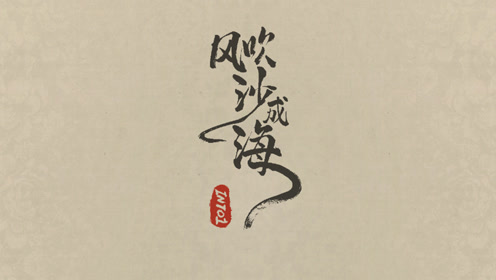 风吹沙成海
INTO1